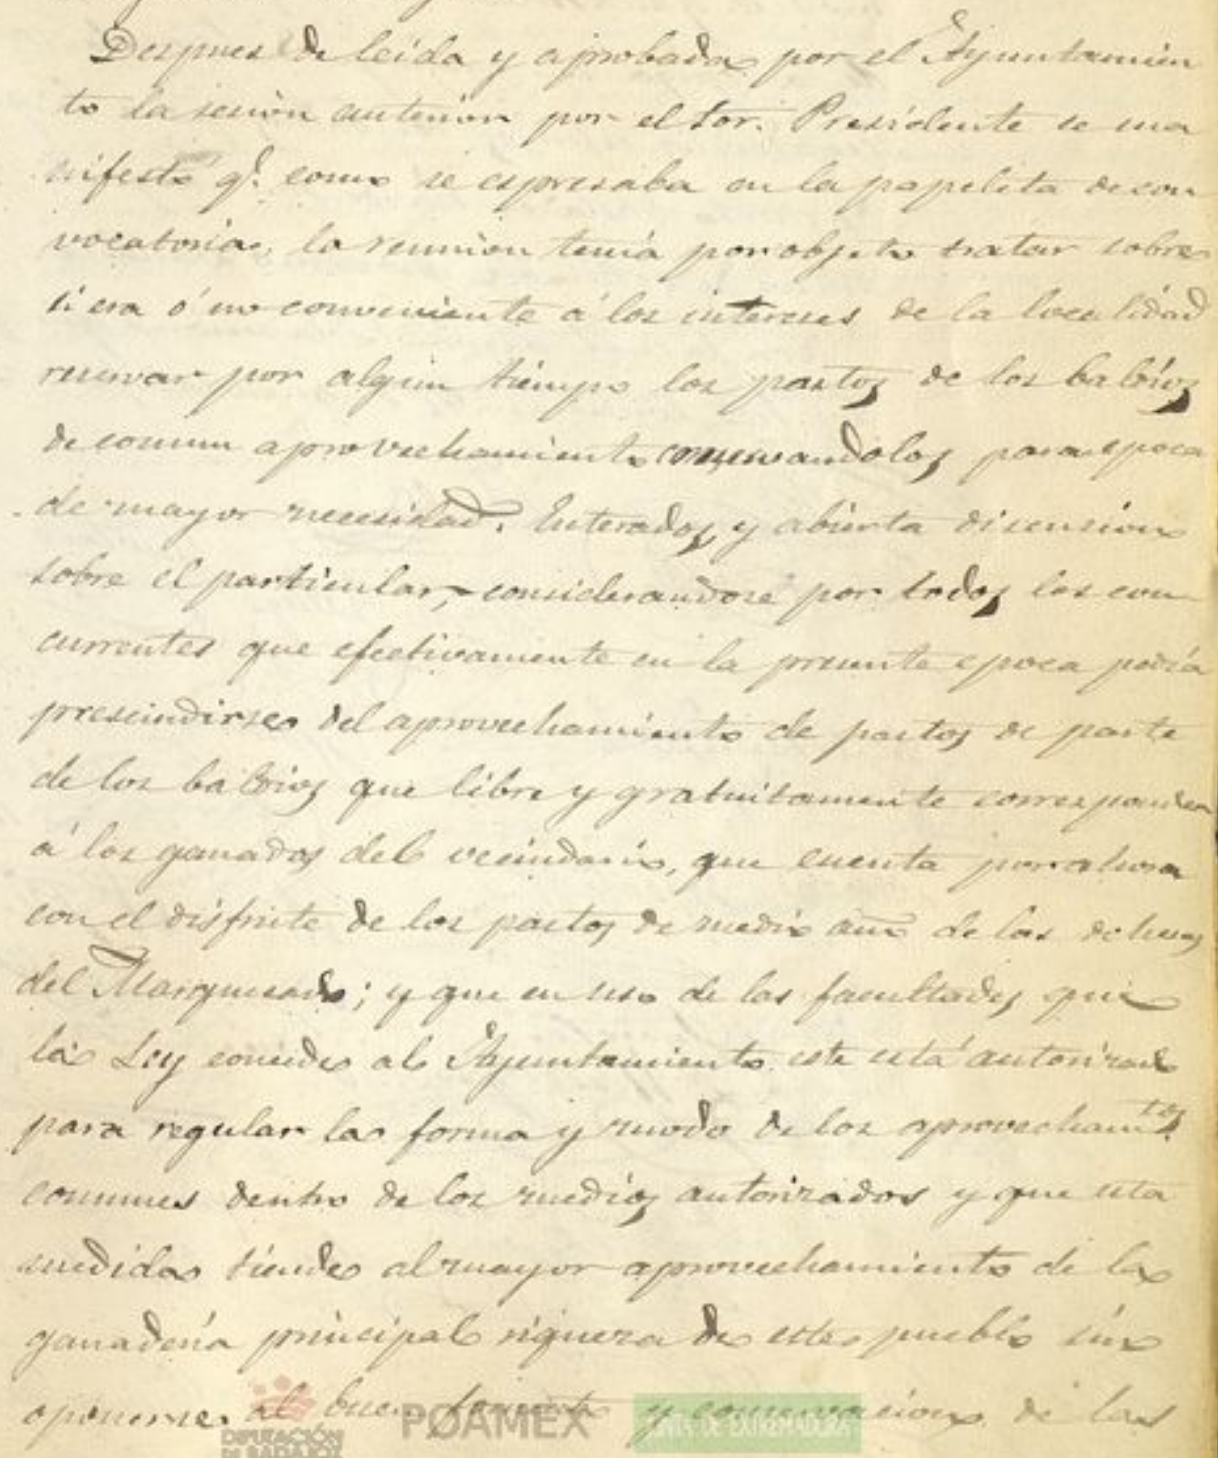 Despues de leida y aprobada por el Ayuntamien
to la sesion anterior por el Sor. Presidente se ma
nifestó q.e como se espresaba en la papeleta de con
vocatoria, la reunion tenia por objeto tratar sobre
si era ó no conveniente á los intereses de la localidad
reservar por algun tiempo los pastos de los baldios
de comun aprovechamiento conservandolos para epoca
de mayor necesidad. Enterados y abierta discusion
sobre el particular, considerandose por todos los con
currentes que efectivamente en la presente epoca podia
prescindirse del aprovechamiento de pastos de parte
de los baldios que libre y gratuitamente corresponden
á los ganados del vecindario, que cuenta por ahora
con el disfrute de los pastos de medio año de las dehesas
del Marquesado; y que en uso de las facultades que
la Ley concede al Ayuntamiento este está autorizado
para regular la forma y modo de los aprovechamtos
comunes dentro de los medios autorizados y que esta
medida tiende al mayor aprovechamiento de la
ganaderia principal riqueza de este pueblo sin
oponerse al buen fomento y conservacion de las
DIPUTACIÓN DE BADAJOZ
POAMEX
JUNTA DE EXTREMADURA